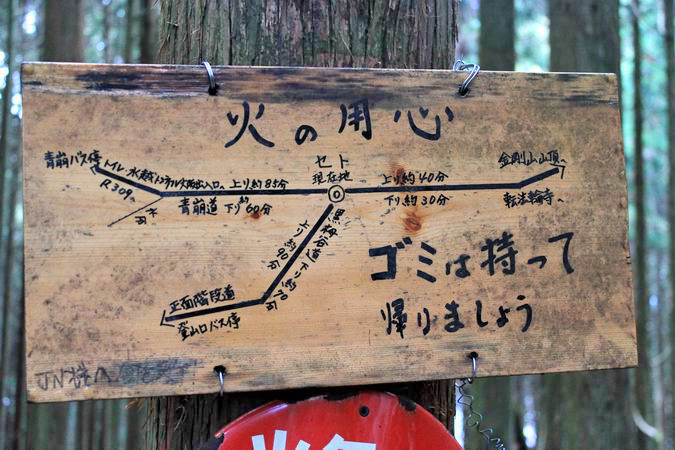 火の用心
青崩バス停
トイレ・水越トンネル大阪出入口へ
R309へ
上り約85分
青崩道 下り約60分
セト
現在地
上り約40分
下り約30分
金剛山山頂へ
転法輪寺へ
黒栂谷道 下り約70分
上り約90分
正面階段道
登山口バス停
ゴミは持って
帰りましょう